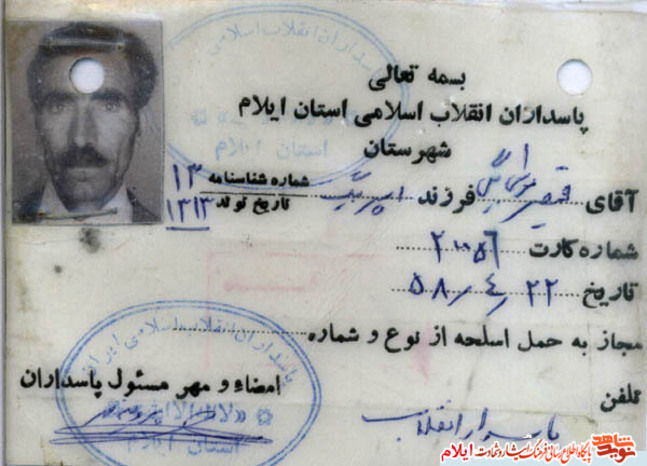 بسمه تعالی
پاسداران انقلاب اسلامی استان ایلام
شهرستان
آقای قنبر فرزند
شماره شناسنامه ۱۳
تاریخ تولد ۱۳۱۳
شماره کارت ۲۰۰۵۶
تاریخ ۲۲ / ۴ / ۵۸
مجاز به حمل اسلحه از نوع و شماره
امضاء و مهر مسئول پاسداران
تلفن
پاسدار انقلاب
پاسداران انقلاب اسلامی
استان ایلام
پاسداران انقلاب اسلامی ایران
استان ایلام
نوید شاهد
پایگاه اطلاع رسانی فرهنگ ایثار و شهادت ایلام